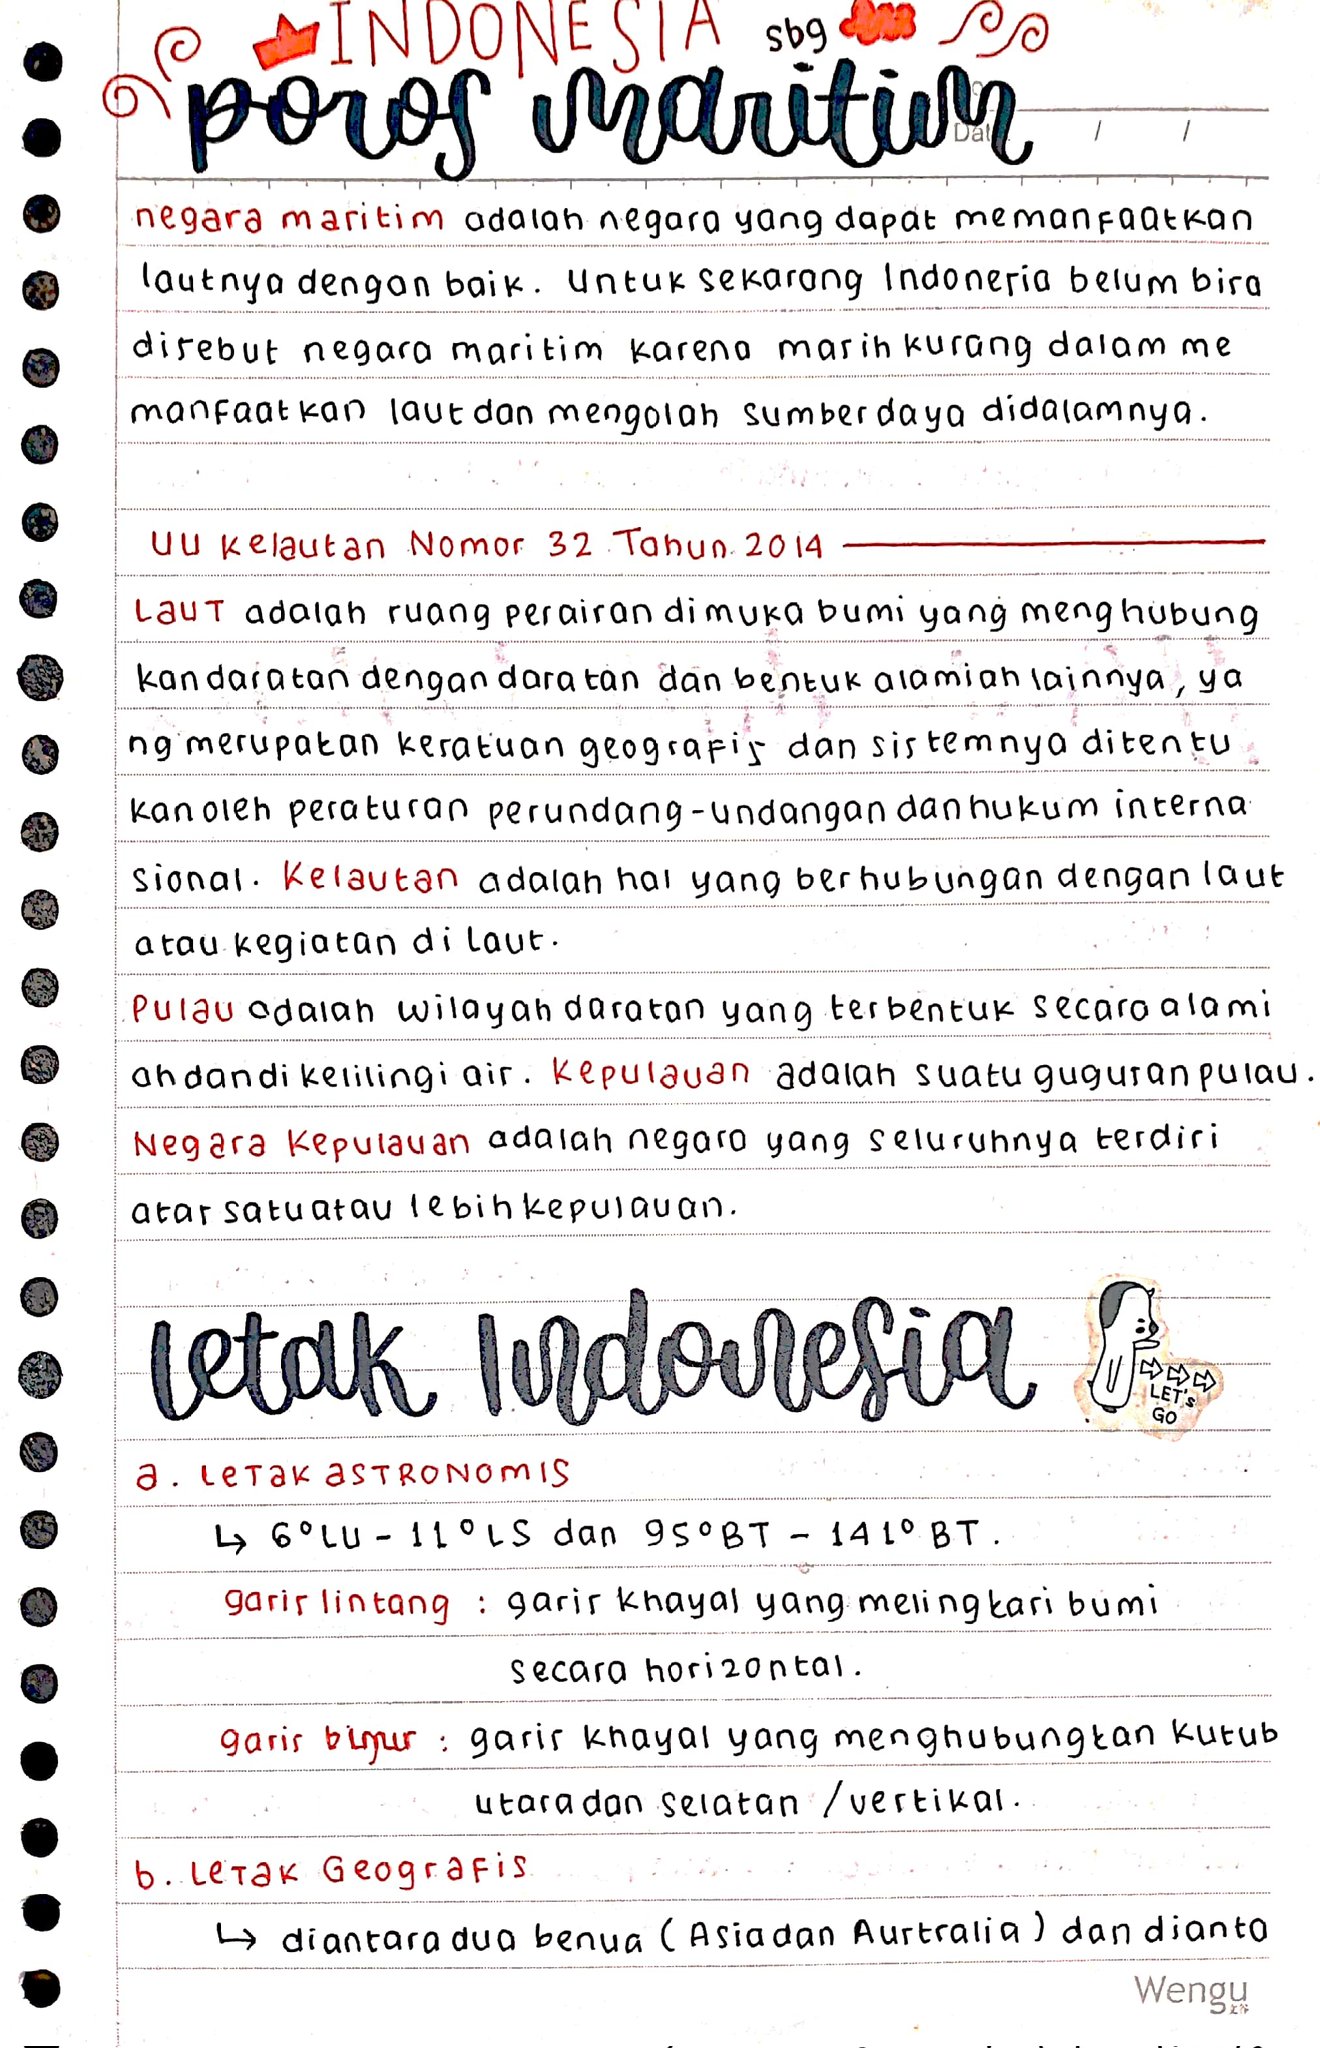 INDONESIA sbg
poros maritim
Date / /
negara maritim adalah negara yang dapat memanfaatkan
lautnya dengan baik. Untuk sekarang Indonesia belum bisa
disebut negara maritim karena masih kurang dalam me
manfaatkan laut dan mengolah sumber daya didalamnya.
UU Kelautan Nomor 32 Tahun 2014
Laut adalah ruang perairan dimuka bumi yang menghubung
kan daratan dengan daratan dan bentuk alamiah lainnya, ya
ng merupakan kesatuan geografis dan sistemnya ditentu
kan oleh peraturan perundang-undangan dan hukum interna
sional. Kelautan adalah hal yang berhubungan dengan laut
atau kegiatan di Laut.
Pulau adalah wilayah daratan yang terbentuk secara alami
ah dan di kelilingi air. Kepulauan adalah suatu gugusan pulau.
Negara Kepulauan adalah negara yang seluruhnya terdiri
atas satu atau lebih kepulauan.
Letak Indonesia
LET's
GO
a. Letak ASTRONOMIS
↳ 6°LU - 11°LS dan 95°BT - 141°BT.
garis lintang : garis khayal yang melingkari bumi
secara horizontal.
garis bujur : garis khayal yang menghubungkan kutub
utara dan selatan /vertikal.
b. Letak Geografis
↳ diantara dua benua (Asia dan Australia) dan dianta
Wengu